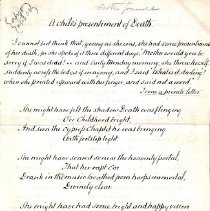 A child's presentiment of Death.
I cannot but think that, young as she was, she had some presentiment
of her death, for she spoke of it three different days, "Mother would you be
sorry if I was dead?" and early Monday morning, she threw herself
suddenly across the bed as if in agony, and I said "What is it darling?"
when she pointed upward with her finger, and said not a word."
From a private letter.
She might have felt the shadow Death was flinging
O'er Childhood bright,
And seen the Cypress Chaplet he was bringing
With ghostly light
She might have soared near the heavenly portal,
That her rapt Ear
Drank in the music breathed from harps immortal,
Divinely clear.
She might have had some bright and happy vision